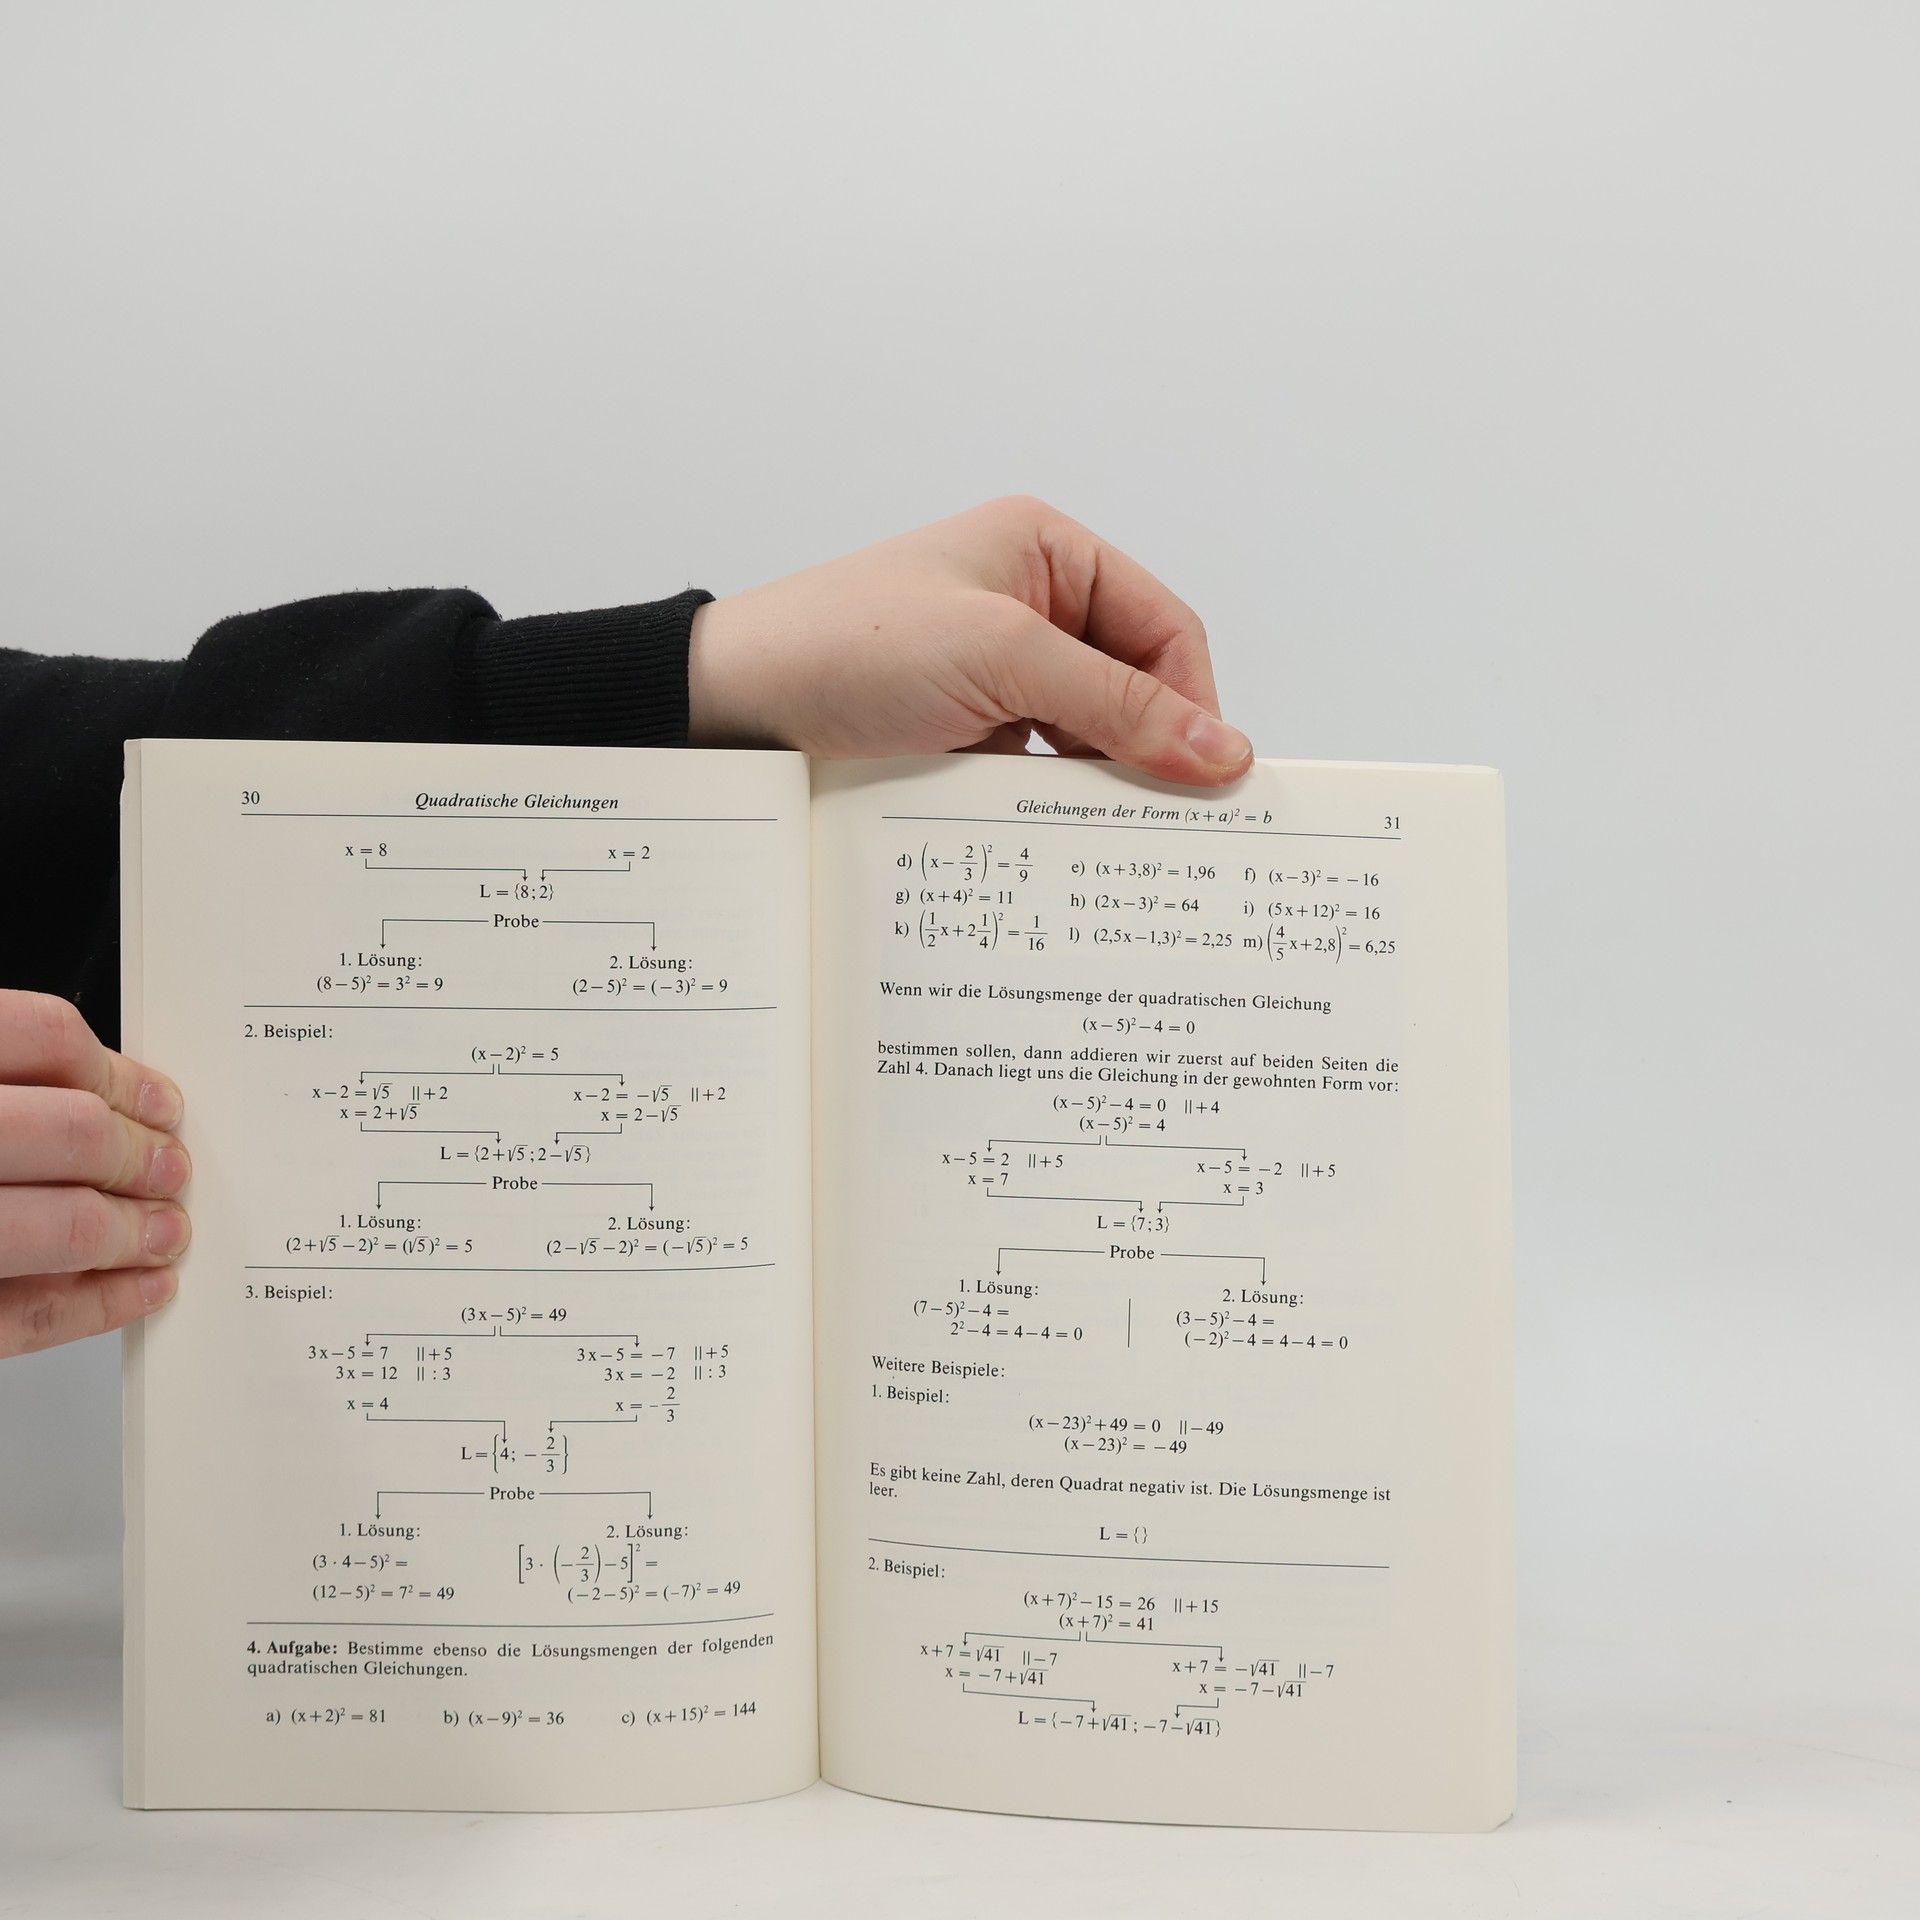 30 Quadratische Gleichungen
x = 8 x = 2
L = {8; 2}
Probe
1. Lösung: 2. Lösung:
(8 − 5)² = 3² = 9 (2 − 5)² = (− 3)² = 9
2. Beispiel:
(x − 2)² = 5
x − 2 = √5 || + 2 x − 2 = −√5 || + 2
x = 2 + √5 x = 2 − √5
L = {2 + √5 ; 2 − √5}
Probe
1. Lösung: 2. Lösung:
(2 + √5 − 2)² = (√5)² = 5 (2 − √5 − 2)² = (−√5)² = 5
3. Beispiel:
(3x − 5)² = 49
3x − 5 = 7 || + 5 3x − 5 = −7 || + 5
3x = 12 || : 3 3x = −2 || : 3
x = 4 x = −2/3
L = {4; −2/3}
Probe
1. Lösung: 2. Lösung:
(3 · 4 − 5)² = [3 · (−2/3) − 5]² =
(12 − 5)² = 7² = 49 (− 2 − 5)² = (−7)² = 49
4. Aufgabe: Bestimme ebenso die Lösungsmengen der folgenden
quadratischen Gleichungen.
a) (x + 2)² = 81 b) (x − 9)² = 36 c) (x + 15)² = 144
Gleichungen der Form (x + a)² = b 31
d) (x − 2/3)² = 4/9 e) (x + 3,8)² = 1,96 f) (x − 3)² = − 16
g) (x + 4)² = 11 h) (2x − 3)² = 64 i) (5x + 12)² = 16
k) (1/2 x + 2 1/4)² = 1/16 l) (2,5x − 1,3)² = 2,25 m) (4/5 x + 2,8)² = 6,25
Wenn wir die Lösungsmenge der quadratischen Gleichung
(x − 5)² − 4 = 0
bestimmen sollen, dann addieren wir zuerst auf beiden Seiten die
Zahl 4. Danach liegt uns die Gleichung in der gewohnten Form vor:
(x − 5)² − 4 = 0 || + 4
(x − 5)² = 4
x − 5 = 2 || + 5 x − 5 = −2 || + 5
x = 7 x = 3
L = {7; 3}
Probe
1. Lösung: 2. Lösung:
(7 − 5)² − 4 = (3 − 5)² − 4 =
2² − 4 = 4 − 4 = 0 (− 2)² − 4 = 4 − 4 = 0
Weitere Beispiele:
1. Beispiel:
(x − 23)² + 49 = 0 || − 49
(x − 23)² = − 49
Es gibt keine Zahl, deren Quadrat negativ ist. Die Lösungsmenge ist
leer.
L = {}
2. Beispiel:
(x + 7)² − 15 = 26 || + 15
(x + 7)² = 41
x + 7 = √41 || − 7 x + 7 = −√41 || − 7
x = − 7 + √41 x = − 7 − √41
L = {− 7 + √41 ; − 7 − √41}